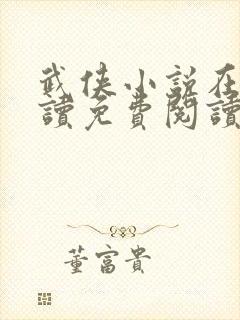 武侠小說在
讀免費閱讀
董富貴